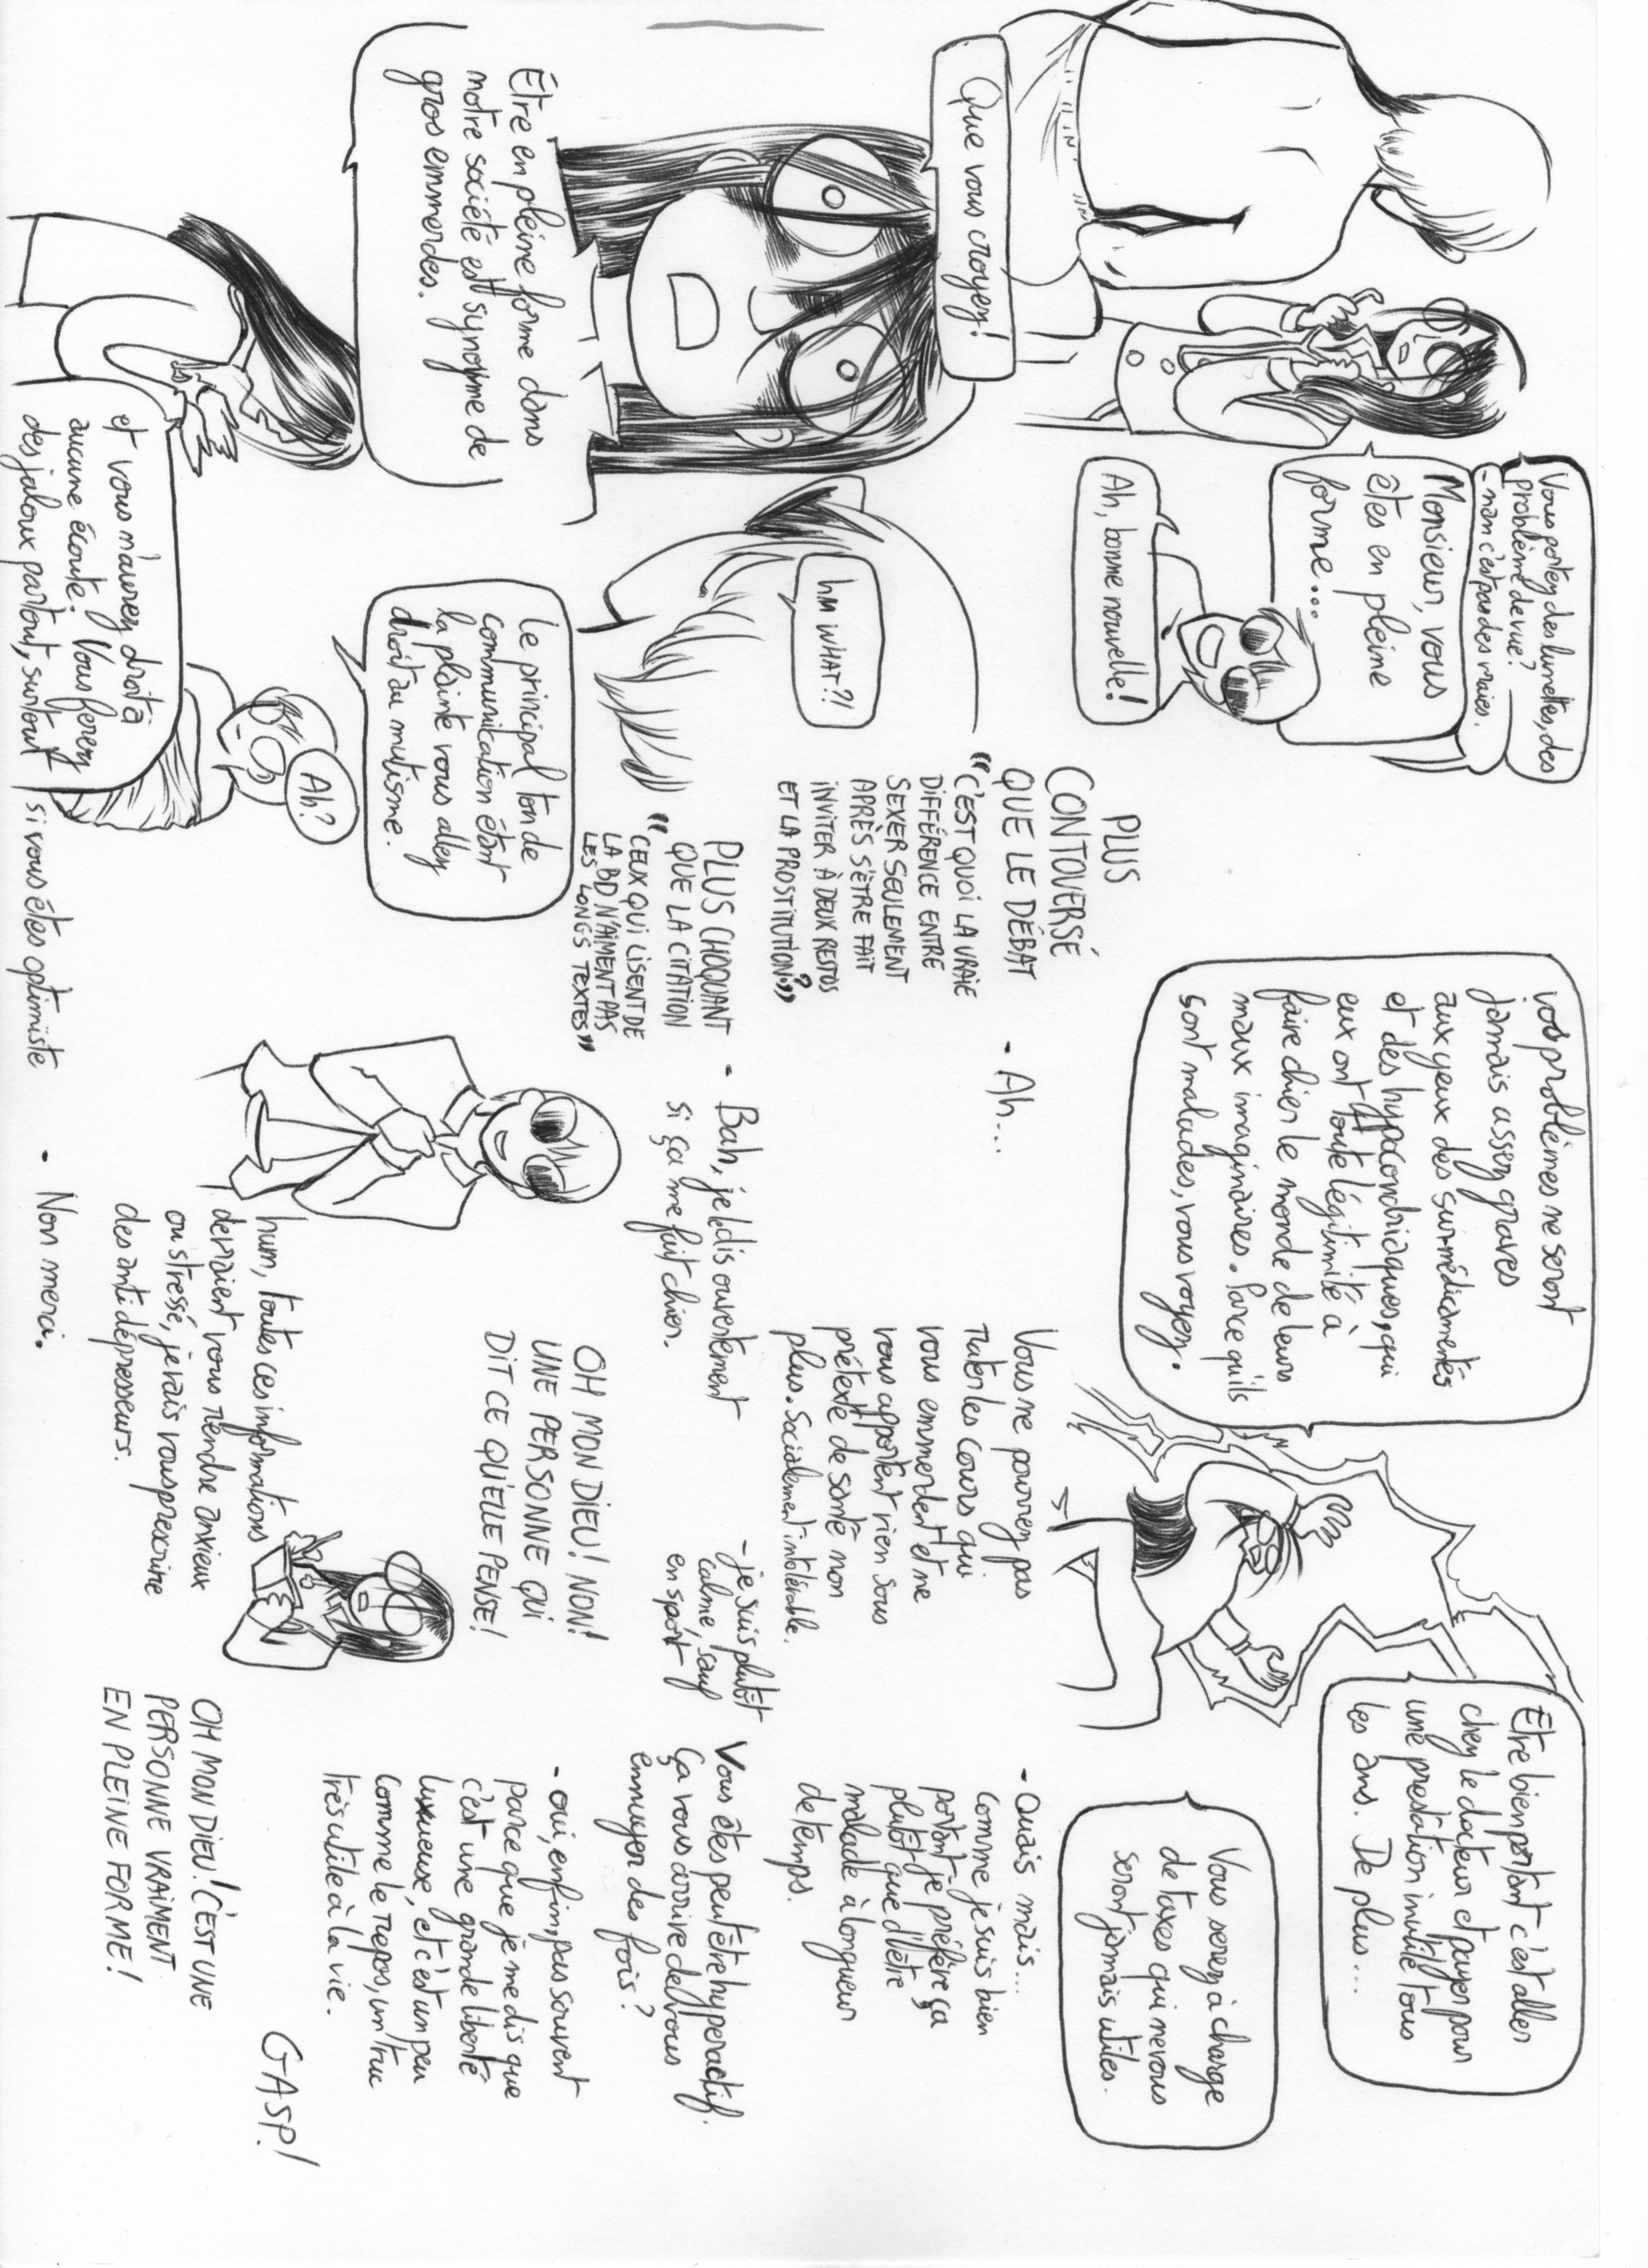 Vous portez des lunettes, des
problème de vue?
- nan c'est pas des vraies.
Monsieur, vous
êtes en pleine
forme...
Ah, bonne nouvelle!
Que vous croyez!
hm WHAT?!
Être en pleine forme dans
notre société est synonyme de
gros emmerdes.
Le principal ton de
communication étant
la plainte vous allez
droit au mutisme.
Ah?
et vous n'aurez droit à
aucune écoute. Vous ferez
des jaloux partout, surtout si vous êtes optimiste
PLUS
CONTOVERSÉ
QUE LE DÉBAT
"C'EST QUOI LA VRAIE
DIFFÉRENCE ENTRE
SEXER SEULEMENT
APRÈS S'ÊTRE FAIT
INVITER À DEUX RESTOS
ET LA PROSTITUTION?"
PLUS CHOQUANT
QUE LA CITATION
"CEUX QUI LISENT DE
LA BD N'AIMENT PAS
LES LONGS TEXTES"
vos problèmes ne seront
jamais assez graves
aux yeux des sur-médicamentés
et des hypocondriaques, qui
eux ont toute légitimité à
faire chier le monde de leurs
maux imaginaires. Parce qu'ils
sont malades, vous voyez.
Être bien portant c'est aller
chez le docteur et payer pour
une prestation inutile tous
les ans. De plus...
Vous serez à charge
de taxes qui ne vous
seront jamais utiles.
- Ah...
Vous ne pourrez pas
rater les cours qui
vous emmerdent et ne
vous apportent rien sous
prétexte de santé non
plus. Socialement intolérable.
- Ouais mais...
comme je suis bien
portant je préfère ça
plutôt que d'être
malade à longueur
de temps.
- Bah, je le dis ouvertement
si ça me fait chier.
- je suis plutôt
calme, sauf
en sport
Vous êtes peut être hyperactif.
Ça vous arrive de vous
ennuyer des fois?
OH MON DIEU! NON!
UNE PERSONNE QUI
DIT CE QU'ELLE PENSE!
- oui, enfin, pas souvent
parce que je me dis que
c'est une grande liberté
luxueuse, et c'est un peu
comme le repos, un truc
très utile à la vie.
hum, toutes ces informations
devraient vous rendre anxieux
ou stressé, je vais vous prescrire
des anti dépresseurs.
- Non merci.
GASP!
OH MON DIEU! C'EST UNE
PERSONNE VRAIMENT
EN PLEINE FORME!